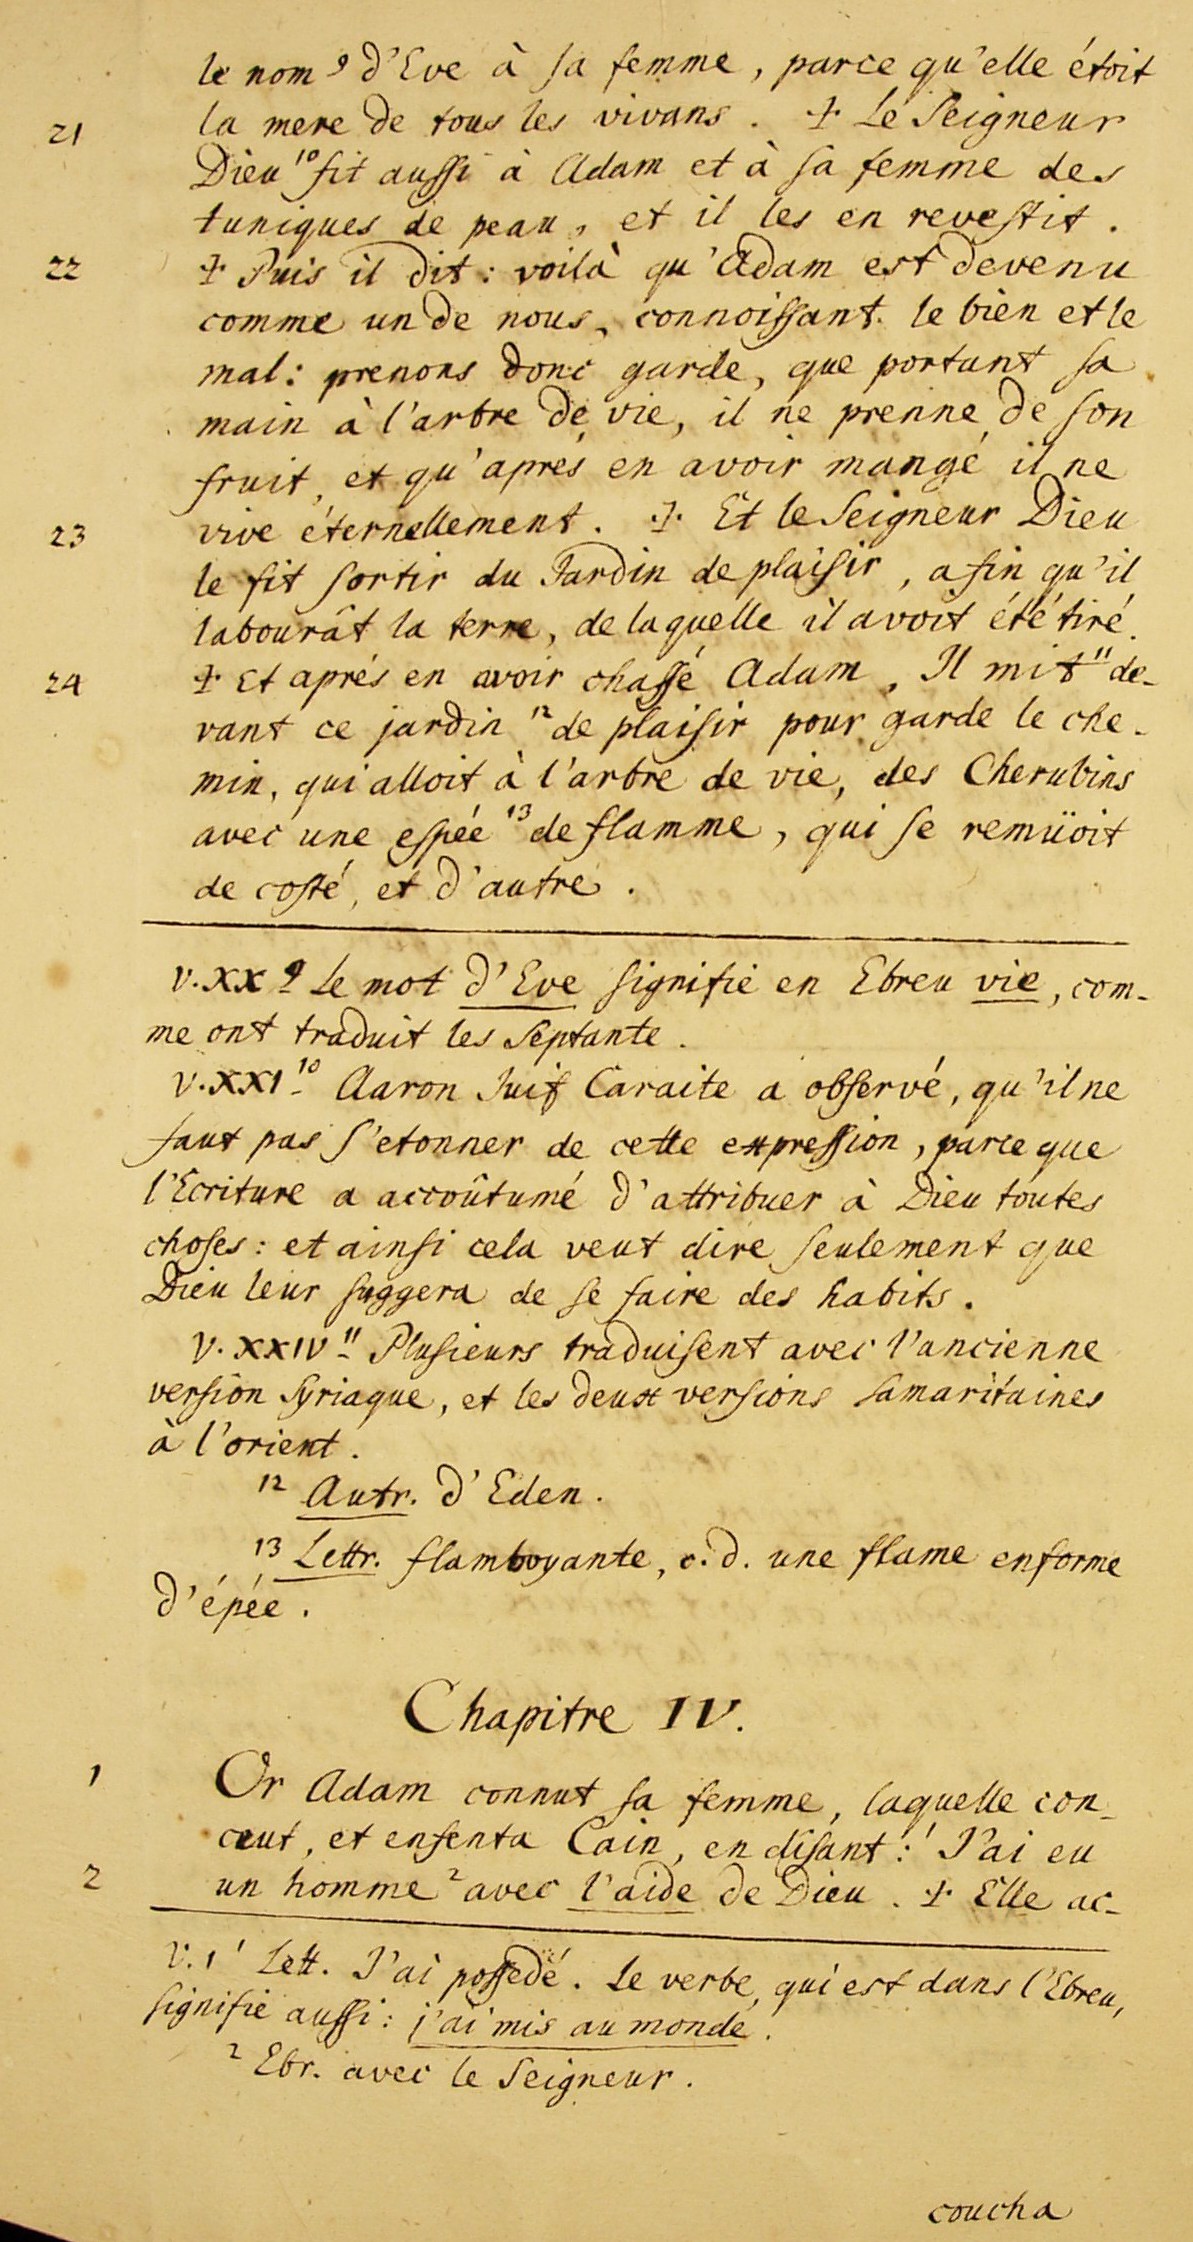 le nom 9 d'Eve à sa femme, parce qu'elle étoit
21 la mere de tous les vivans. ☩ Le Seigneur
Dieu 10 fit aussi à Adam et à sa femme des
tuniques de peau, et il les en revestit.
22 ☩ Puis il dit: voilà qu'Adam est devenu
comme un de nous, connoissant le bien et le
mal: prenons donc garde, que portant sa
main à l'arbre de vie, il ne prenne de son
fruit, et qu'aprés en avoir mangé il ne
23 vive éternellement. ☩ Et le Seigneur Dieu
le fit sortir du Jardin de plaisir, afin qu'il
labourât la terre, de laquelle il avoit été tiré.
24 ☩ Et aprés en avoir chassé Adam, Il mit 11 de-
vant ce jardin 12 de plaisir pour garde le che-
min, qui alloit à l'arbre de vie, des Cherubins
avec une espée 13 de flamme, qui se remüoit
de costé, et d'autre.
V. XX 9 Le mot d'Eve signifie en Ebreu vie, com-
me ont traduit les Septante.
V. XXI 10 Aaron Juif Caraite a observé, qu'il ne
faut pas s'etonner de cette expression, parce que
l'Ecriture a accoûtumé d'attribuer à Dieu toutes
choses: et ainsi cela veut dire seulement que
Dieu leur suggera de se faire des habits.
V. XXIV 11 Plusieurs traduisent avec l'ancienne
version Syriaque, et les deux versions samaritaines
à l'orient.
12 Autr. d'Eden.
13 Lettr. flamboyante, c. d. une flame en forme
d'épée.
Chapitre IV.
1 Or Adam connut sa femme, laquelle con-
ceut, et enfenta Cain, en disant: 1 J'ai eu
2 un homme 2 avec l'aide de Dieu. ☩ Elle ac-
V. 1 1 Lett. J'ai possedé. Le verbe, qui est dans l'Ebreu,
signifie aussi: j'ai mis au monde.
2 Ebr. avec le Seigneur.
coucha